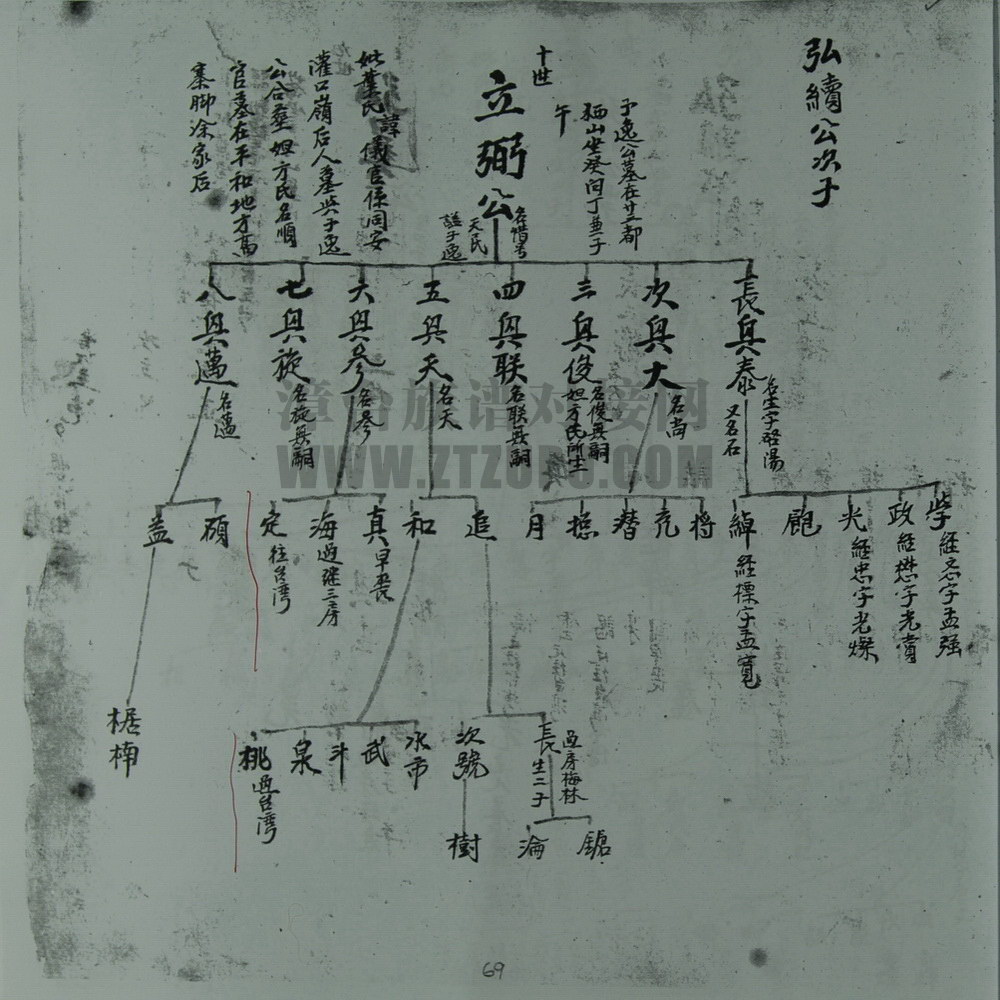 弘續公次子
十世
立弼公
名惜号
天民
謚子逸
子逸公墓在廿三都
栖山坐癸向丁兼子
午
妣葉氏諱儀官係同安
灌口嶺后人墓與子逸
公合塟 妲方氏名順
官墓在平和地方高
寨脚涂家后
長與泰
又名石
次與大
名尚
三與俊
名俊無嗣
妲方氏所生
四與联
名联無嗣
五與天
名天
六與參
名參
七與旋
名旋無嗣
八與邁
名邁
學 經忞字孟强
政 經懋字光賞
光 經忠字光燦
飽
綽 經標字孟寬
将
充
潜
摠
月
追
和
真 早喪
海 過継三房
定 往台湾
碩
益
長 生二子
過房梅林
次號
水市
武
斗
泉
桃 過台湾
楠
鎗
淪
樹
漳台族谱对接网
WWW.ZTZUPU.COM
69